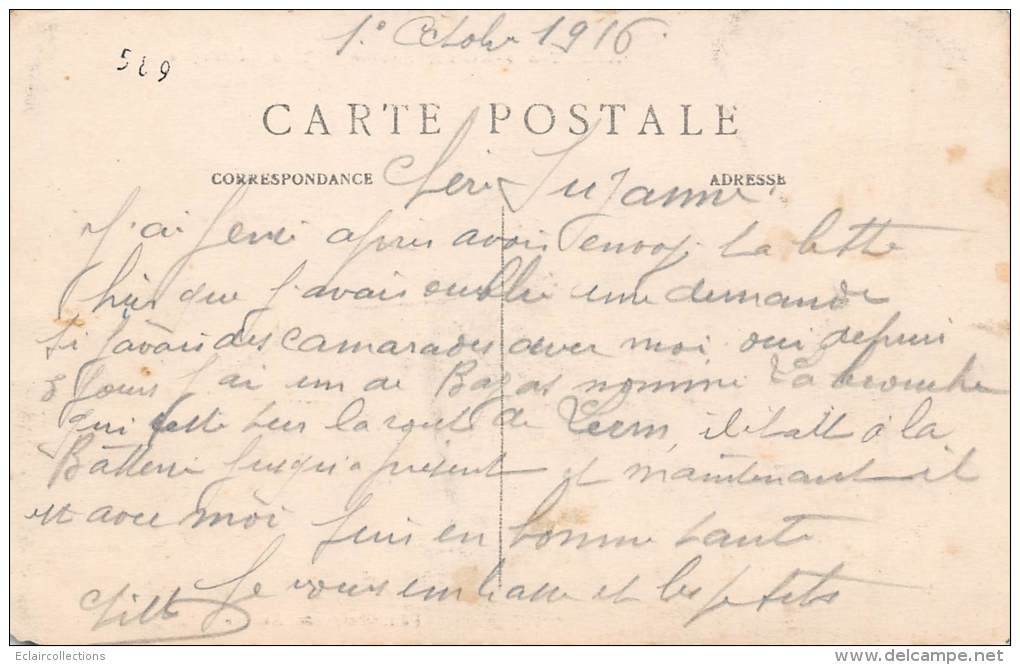 1° Octobre 1916.
529
CARTE POSTALE
CORRESPONDANCE
ADRESSE
Chérie Suzanne
J'ai après avoir envoyé ta lettre
que j'avais oublié une demande
si j'avais des camarades avec moi oui depuis
3 jours j'ai un de Bazas nommé Labrouche
qui reste sur la route de Lerm, il était à la
Batterie jusqu'a présent et maintenant il
est avec moi suis en bonne santé
Je vous embrasse et les petits
Eclaircollections
delcampe.net